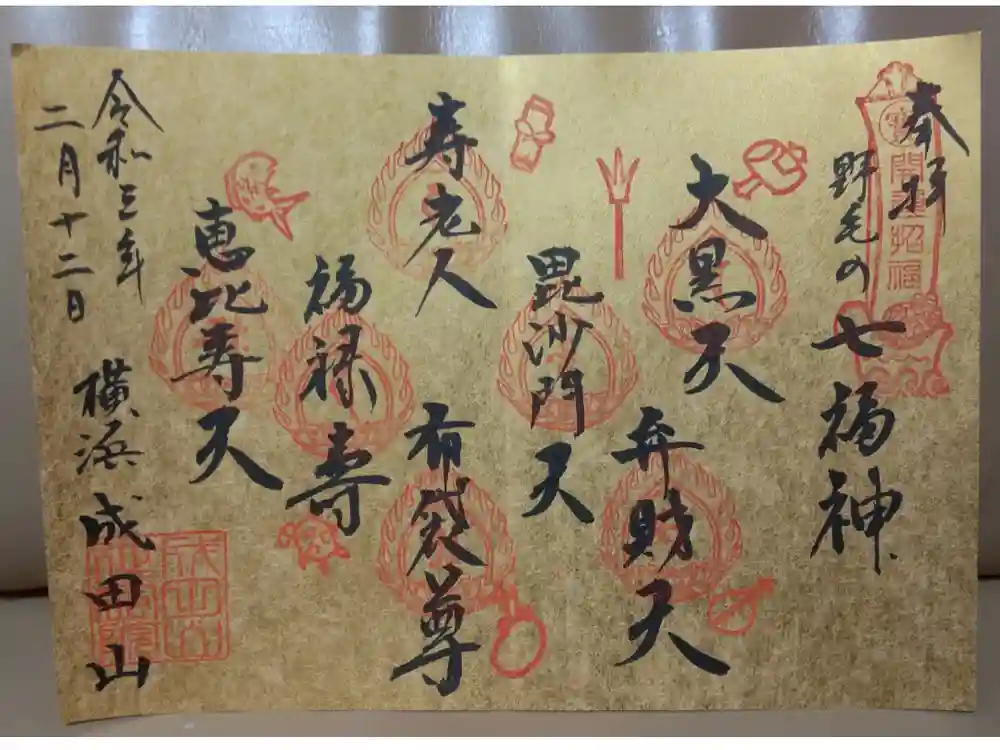 奉拝
開運招福
野毛の
七福神
大黒天
弁財天
毘沙門天
寿老人
布袋尊
福禄壽
恵比寿天
令和三年
二月十二日
横浜成田山